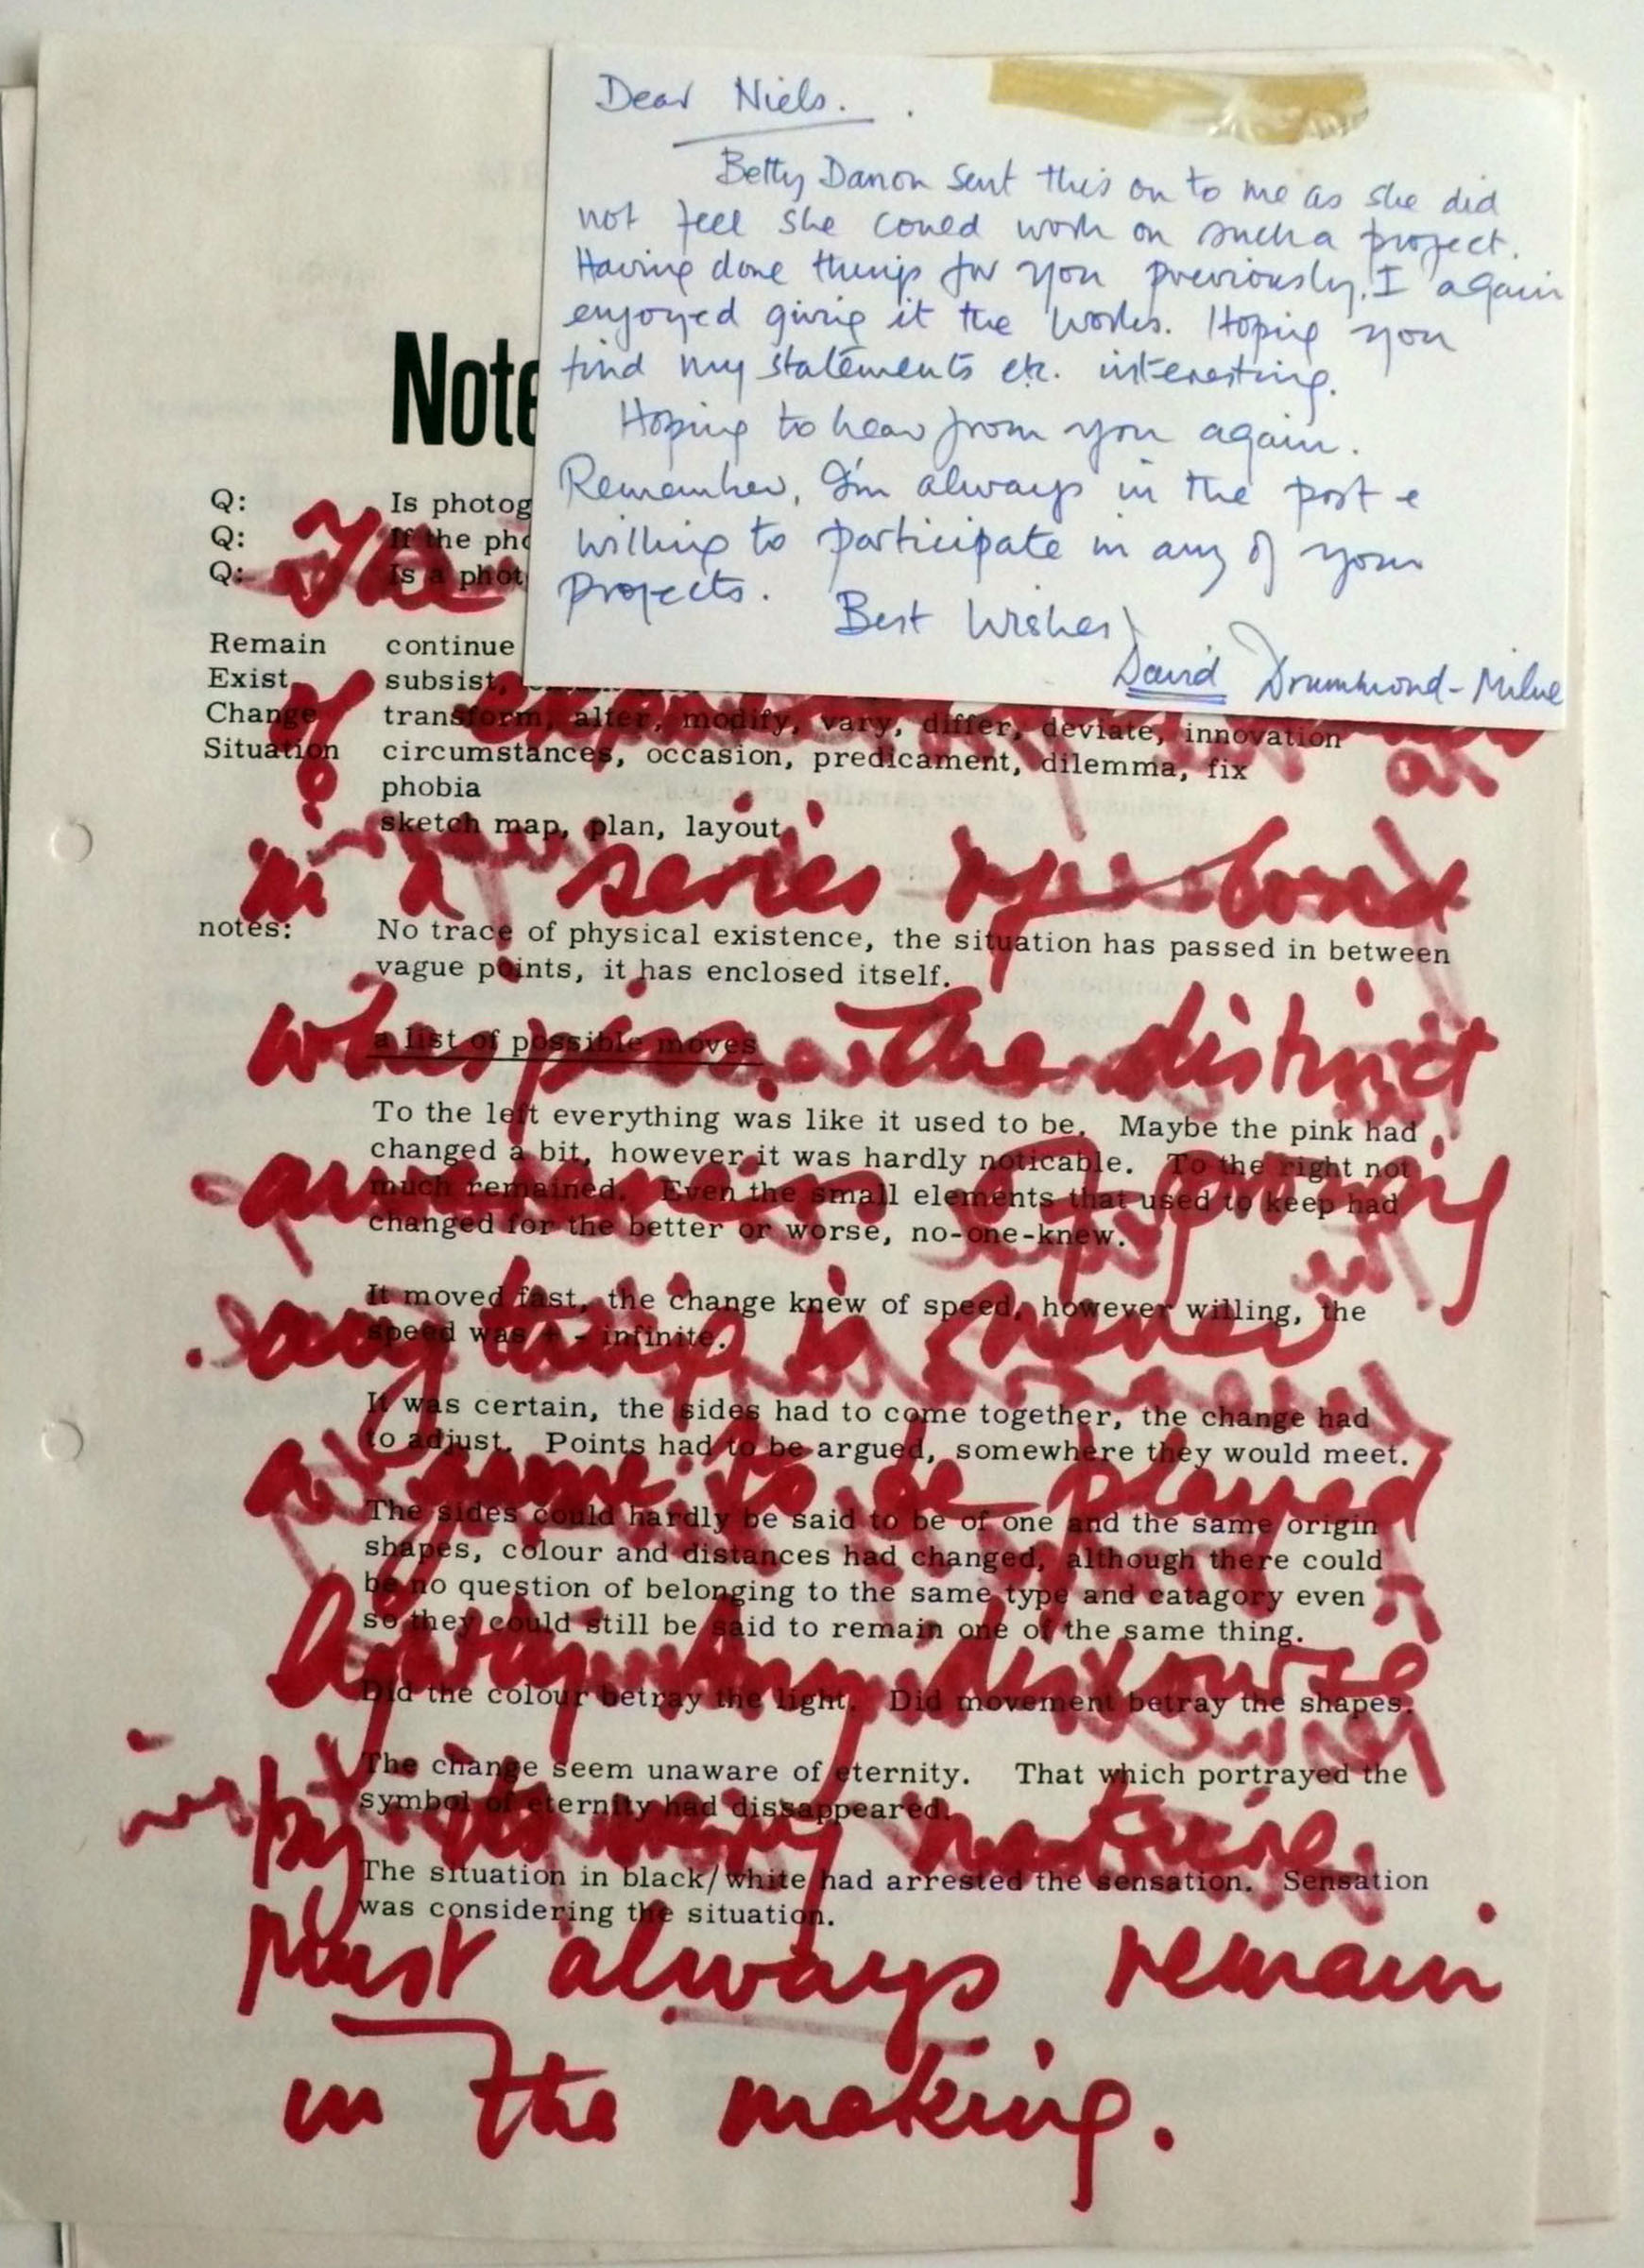 Dear Niels.
Betty Danon sent this on to me as she did
not feel she could work on such a project.
Having done things for you previously, I again
enjoyed giving it the works. Hoping you
find my statements etc. interesting.
Hoping to hear from you again.
Remember, I'm always in the post e
willing to participate in any of your
projects.
Best Wishes
David Drummond-Milne
Note
Q: Is photog
Q: If the pho
Q: Is a phot
The
Remain continue
Exist subsist,
Change transform, alter, modify, vary, differ, deviate, innovation
Situation circumstances, occasion, predicament, dilemma, fix
phobia
sketch map, plan, layout
in a series
notes: No trace of physical existence, the situation has passed in between
vague points, it has enclosed itself.
the distinct
a list of possible moves
To the left everything was like it used to be. Maybe the pink had
changed a bit, however it was hardly noticable. To the right not
much remained. Even the small elements that used to keep had
changed for the better or worse, no-one-knew.
It moved fast, the change knew of speed, however willing, the
speed was + - infinite.
anything is never
It was certain, the sides had to come together, the change had
to adjust. Points had to be argued, somewhere they would meet.
a game to be played
The sides could hardly be said to be of one and the same origin
shapes, colour and distances had changed, although there could
be no question of belonging to the same type and catagory even
so they could still be said to remain one of the same thing.
discourse
Did the colour betray the light. Did movement betray the shapes.
The change seem unaware of eternity. That which portrayed the
symbol of eternity had dissappeared.
by its very nature
The situation in black/white had arrested the sensation. Sensation
was considering the situation.
must always remain
in the making.